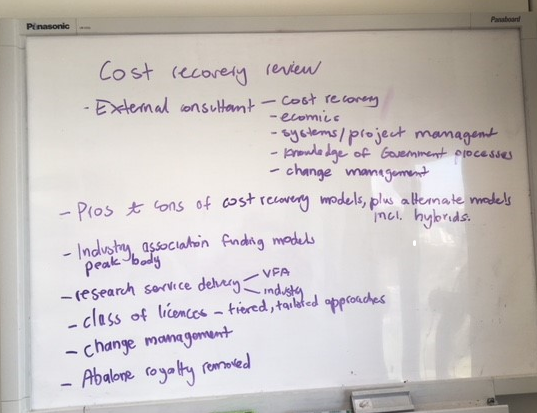 Panasonic
Panaboard
Cost recovery review
- External consultant - cost recovery
- ecomics
- systems/project managent
- knowledge of Government processes
- change management
- Pros & cons of cost recovery models, plus alternate models
incl. hybrids.
- Industry association funding models
peak body
- research service delivery - VFA
- industry
- class of licences - tiered, tailored approaches
- change management
- Abalone royalty removed